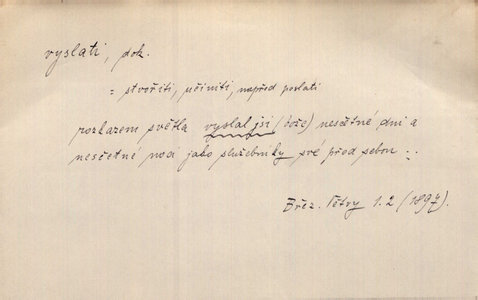 vyslati, dok.
= stvořiti, učiniti, napřed poslati
rozkazem světla vyslal jsi (bože) nesčetné dni a
nesčetné noci jako služebníky své před sebou ..
Břez. Větry 1.2 (1897).